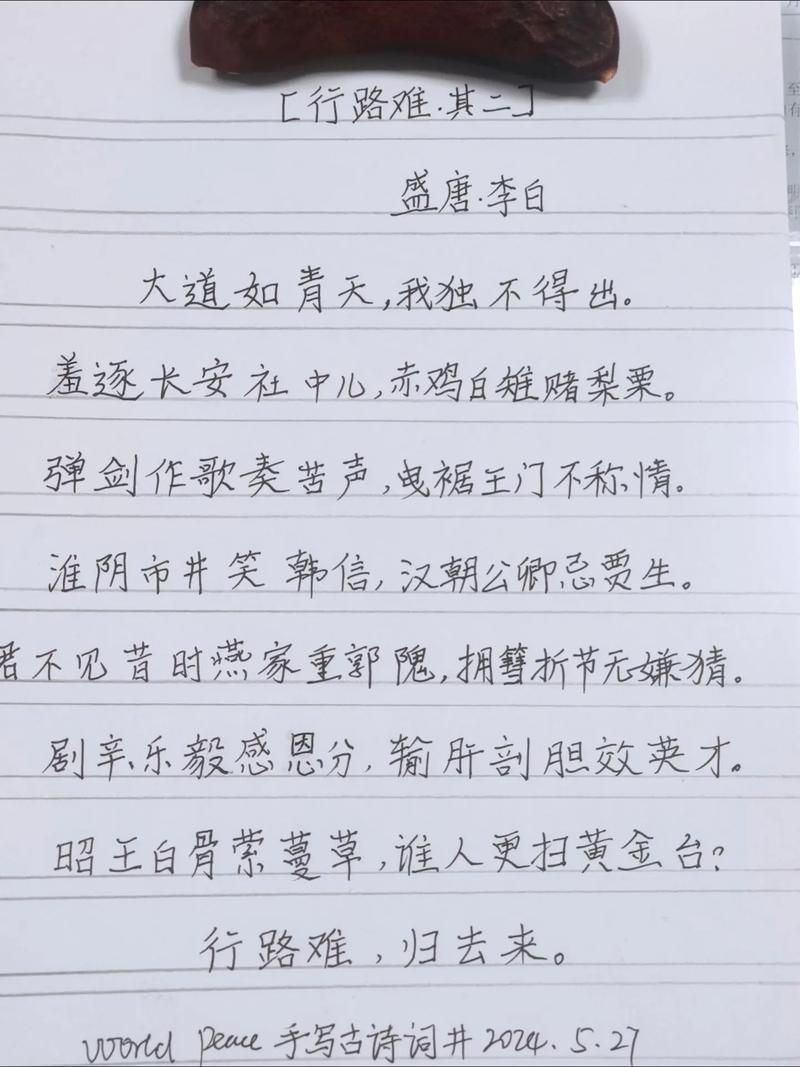 [行路难·其二]
盛唐·李白
大道如青天,我独不得出。
羞逐长安社中儿,赤鸡白雉赌梨栗。
弹剑作歌奏苦声,曳裾王门不称情。
淮阴市井笑韩信,汉朝公卿忌贾生。
君不见昔时燕家重郭隗,拥篲折节无嫌猜。
剧辛乐毅感恩分,输肝剖胆效英才。
昭王白骨萦蔓草,谁人更扫黄金台?
行路难,归去来。
World Peace 手写古诗词井 2024.5.27